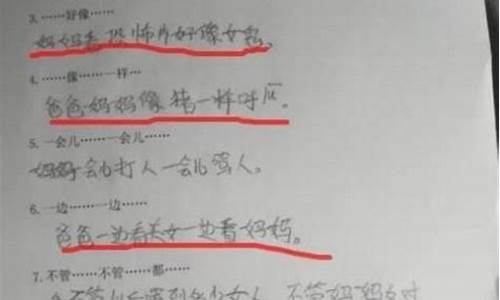 3.……好像……
妈妈看恐怖片好像女鬼。
4.……像……一样…
爸爸妈妈像猪一样呼瓜。
5.一会儿……一会儿……
妈妈会儿打人一会儿骂人。
6.一边……一边……
爸爸一边看美女一边看妈妈。
7.不管……不管……都……
不管妈妈